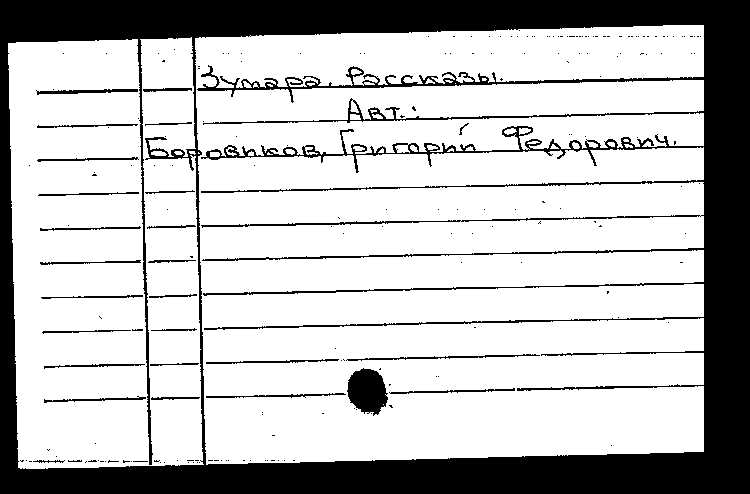 Зумара. Рассказы.
Авт.:
Боровиков, Григорий Федорович.